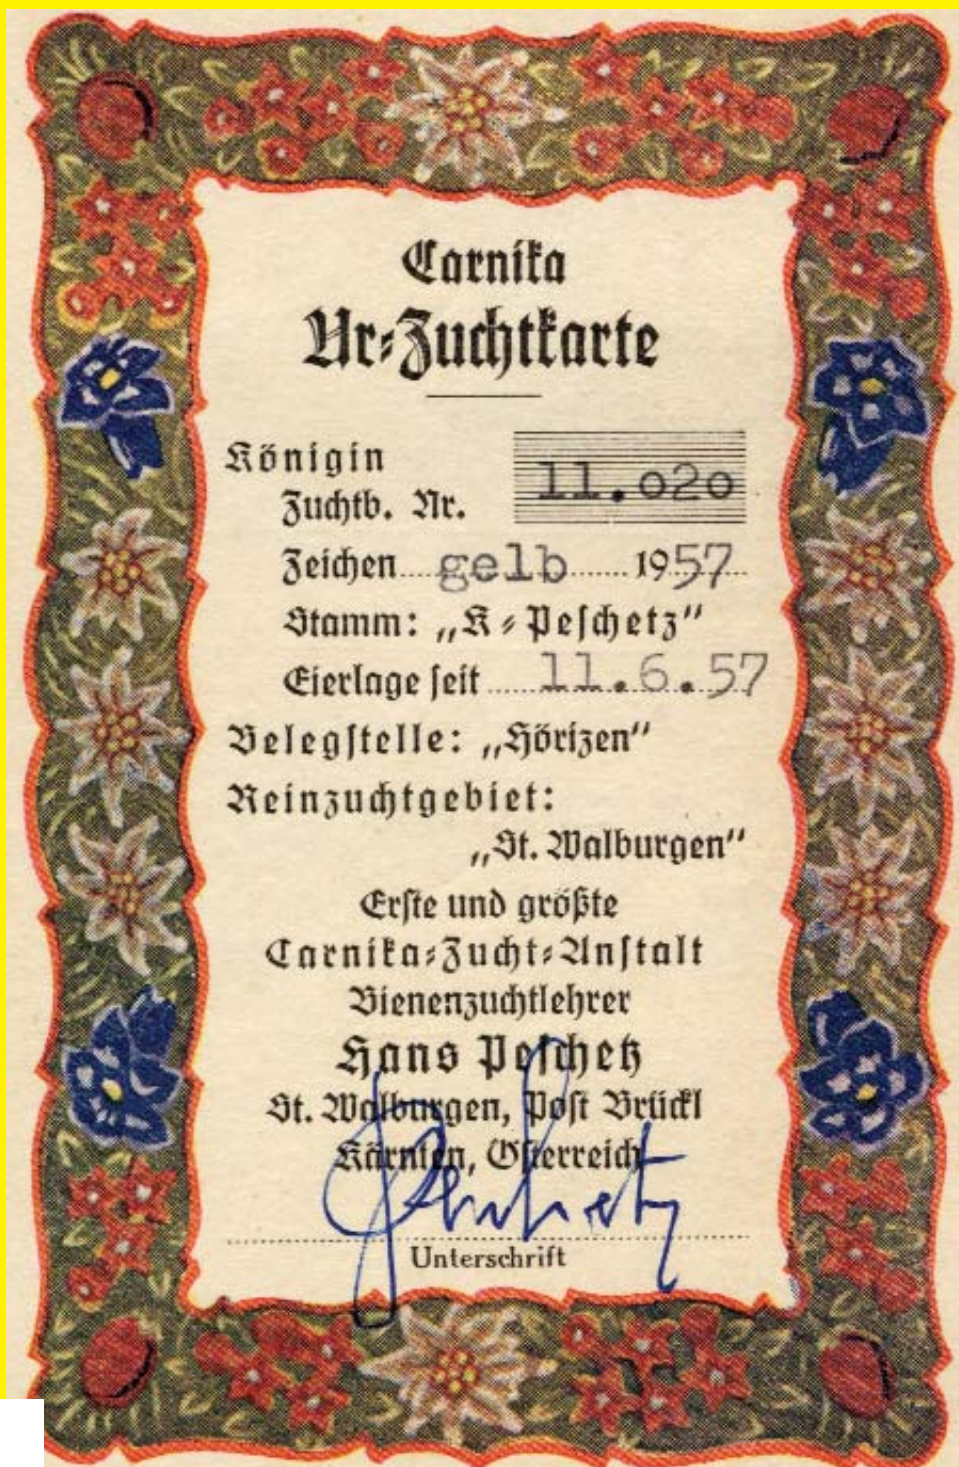 Carnika
Ur-Zuchtkarte
Königin
Zuchtb. Nr. 11.020
Zeichen gelb 1957
Stamm: „K-Peschetz"
Eierlage seit 11.6.57
Belegstelle: „Hörizen"
Reinzuchtgebiet:
„St. Walburgen"
Erste und größte
Carnika-Zucht-Anstalt
Bienenzuchtlehrer
Hans Peschetz
St. Walburgen, Post Brückl
Kärnten, Österreich
Peschetz
Unterschrift